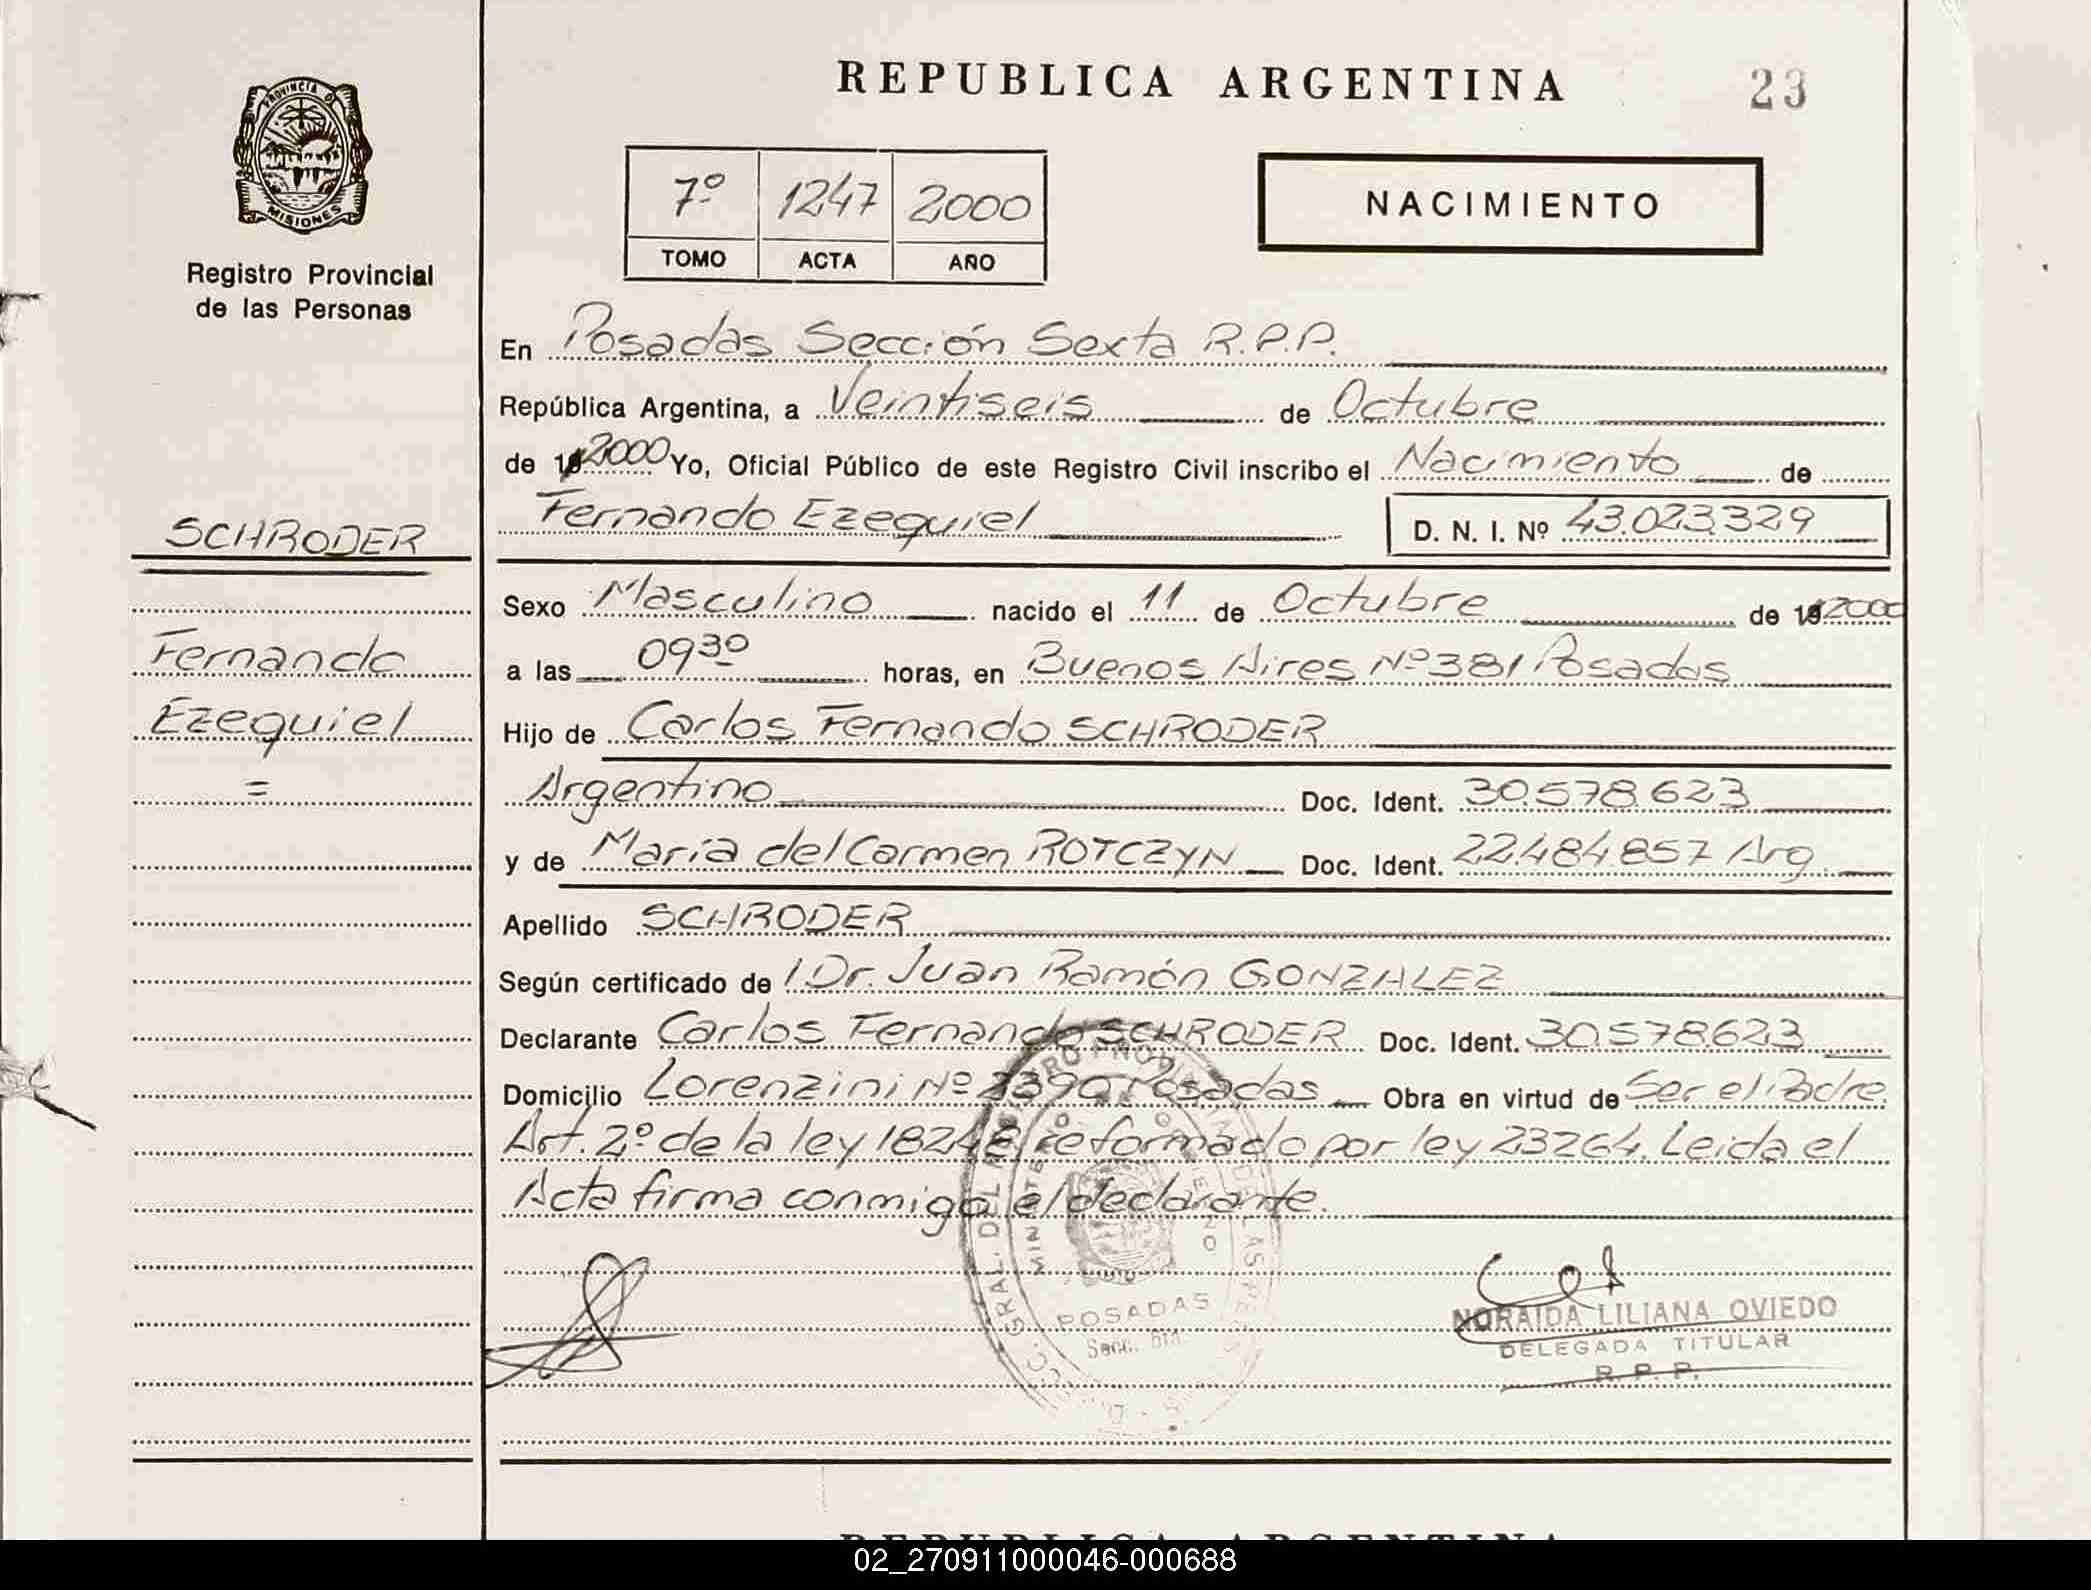 REPUBLICA ARGENTINA
23
PROVINCIA DE
MISIONES
Registro Provincial
de las Personas
7º 1247 2000
TOMO ACTA AÑO
NACIMIENTO
En Posadas Sección Sexta R.P.P.
República Argentina, a Veintiseis de Octubre
de 2000 Yo, Oficial Público de este Registro Civil inscribo el Nacimiento de
Fernando Ezequiel D. N. I. Nº 43.023.329
SCHRODER
Fernando
Ezequiel
=
Sexo Masculino nacido el 11 de Octubre de 2000
a las 09³⁰ horas, en Buenos Aires Nº 381 Posadas
Hijo de Carlos Fernando SCHRODER
Argentino Doc. Ident. 30.578.623
y de María del Carmen ROTCZYN Doc. Ident. 22.484.857 Arg.
Apellido SCHRODER
Según certificado de l Dr. Juan Ramón GONZALEZ
Declarante Carlos Fernando SCHRODER Doc. Ident. 30.578.623
Domicilio Lorenzini Nº 2390 Posadas Obra en virtud de Ser el Padre.
Art. 2º de la ley 18248 reformado por ley 23264. Leida el
Acta firma conmigo el declarante.
POSADAS
NORAIDA LILIANA OVIEDO
DELEGADA TITULAR
R. P. P.
REPUBLICA ARGENTINA
02_270911000046-000688